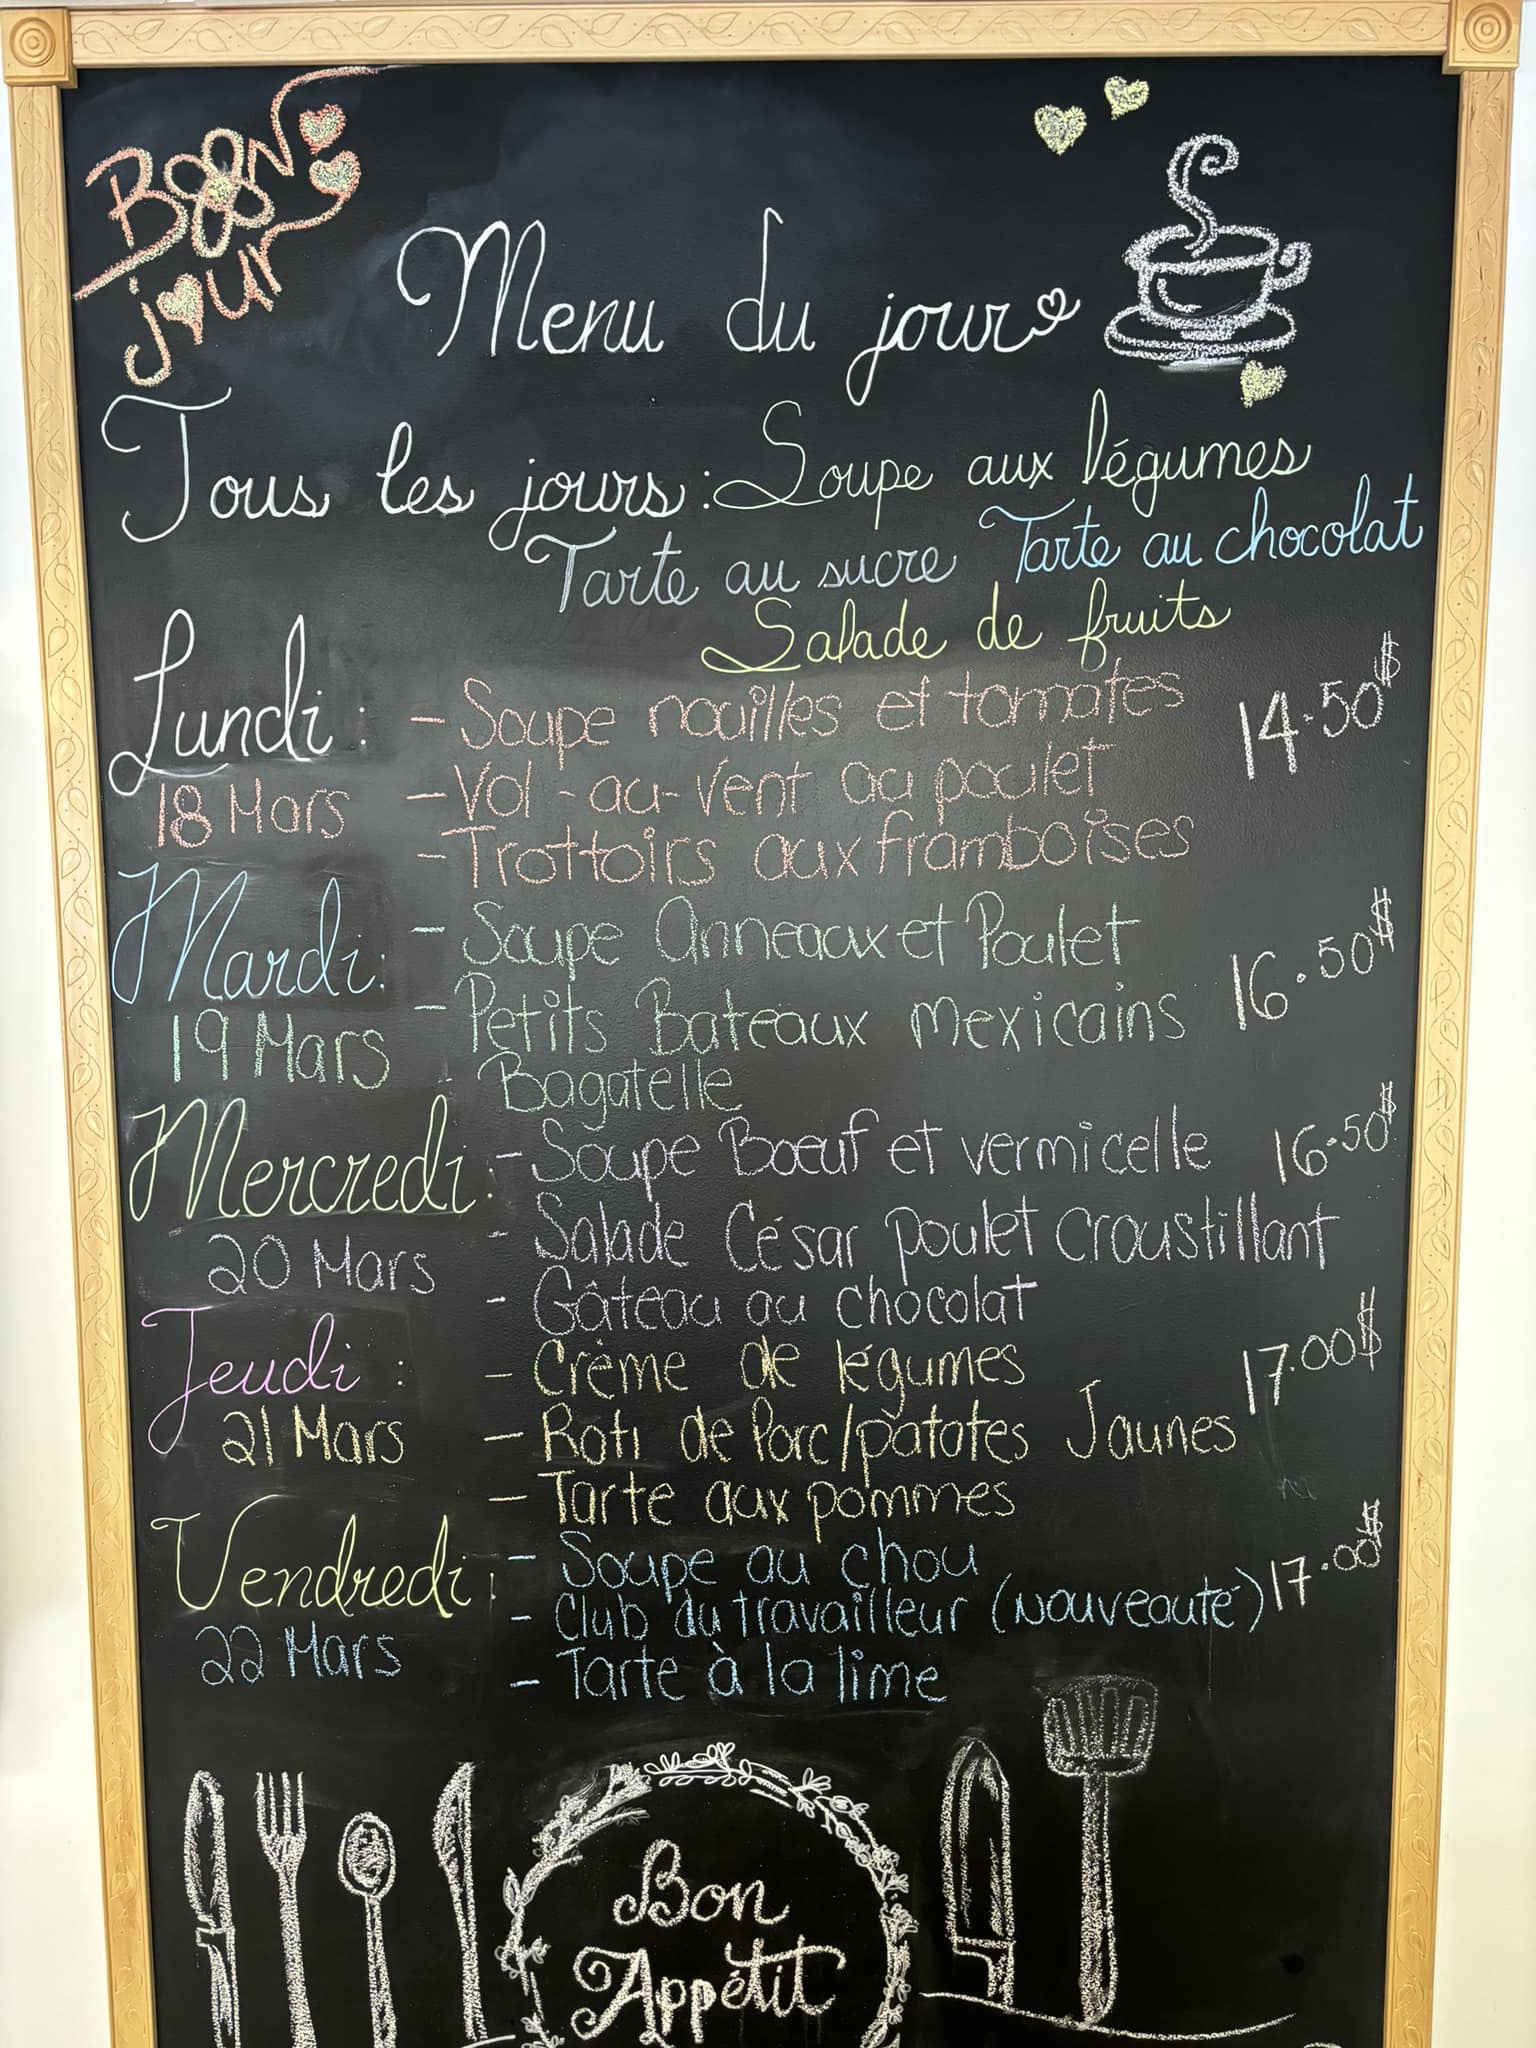 Bon
jour
Menu du jour
Tous les jours: Soupe aux légumes
Tarte au sucre Tarte au chocolat
Salade de fruits
Lundi: - Soupe nouilles et tomates 14.50$
18 Mars - Vol-au-vent au poulet
- Trottoirs aux framboises
Mardi: - Soupe Anneaux et Poulet
19 Mars - Petits Bateaux mexicains 16.50$
- Bagatelle
Mercredi: - Soupe Bœuf et vermicelle 16.50$
20 Mars - Salade César poulet croustillant
- Gâteau au chocolat
Jeudi: - Crème de légumes 17.00$
21 Mars - Roti de Porc/patates Jaunes
- Tarte aux pommes
Vendredi: - Soupe au chou
22 Mars - Club du travailleur (Nouveauté) 17.00$
- Tarte à la lime
Bon
Appétit